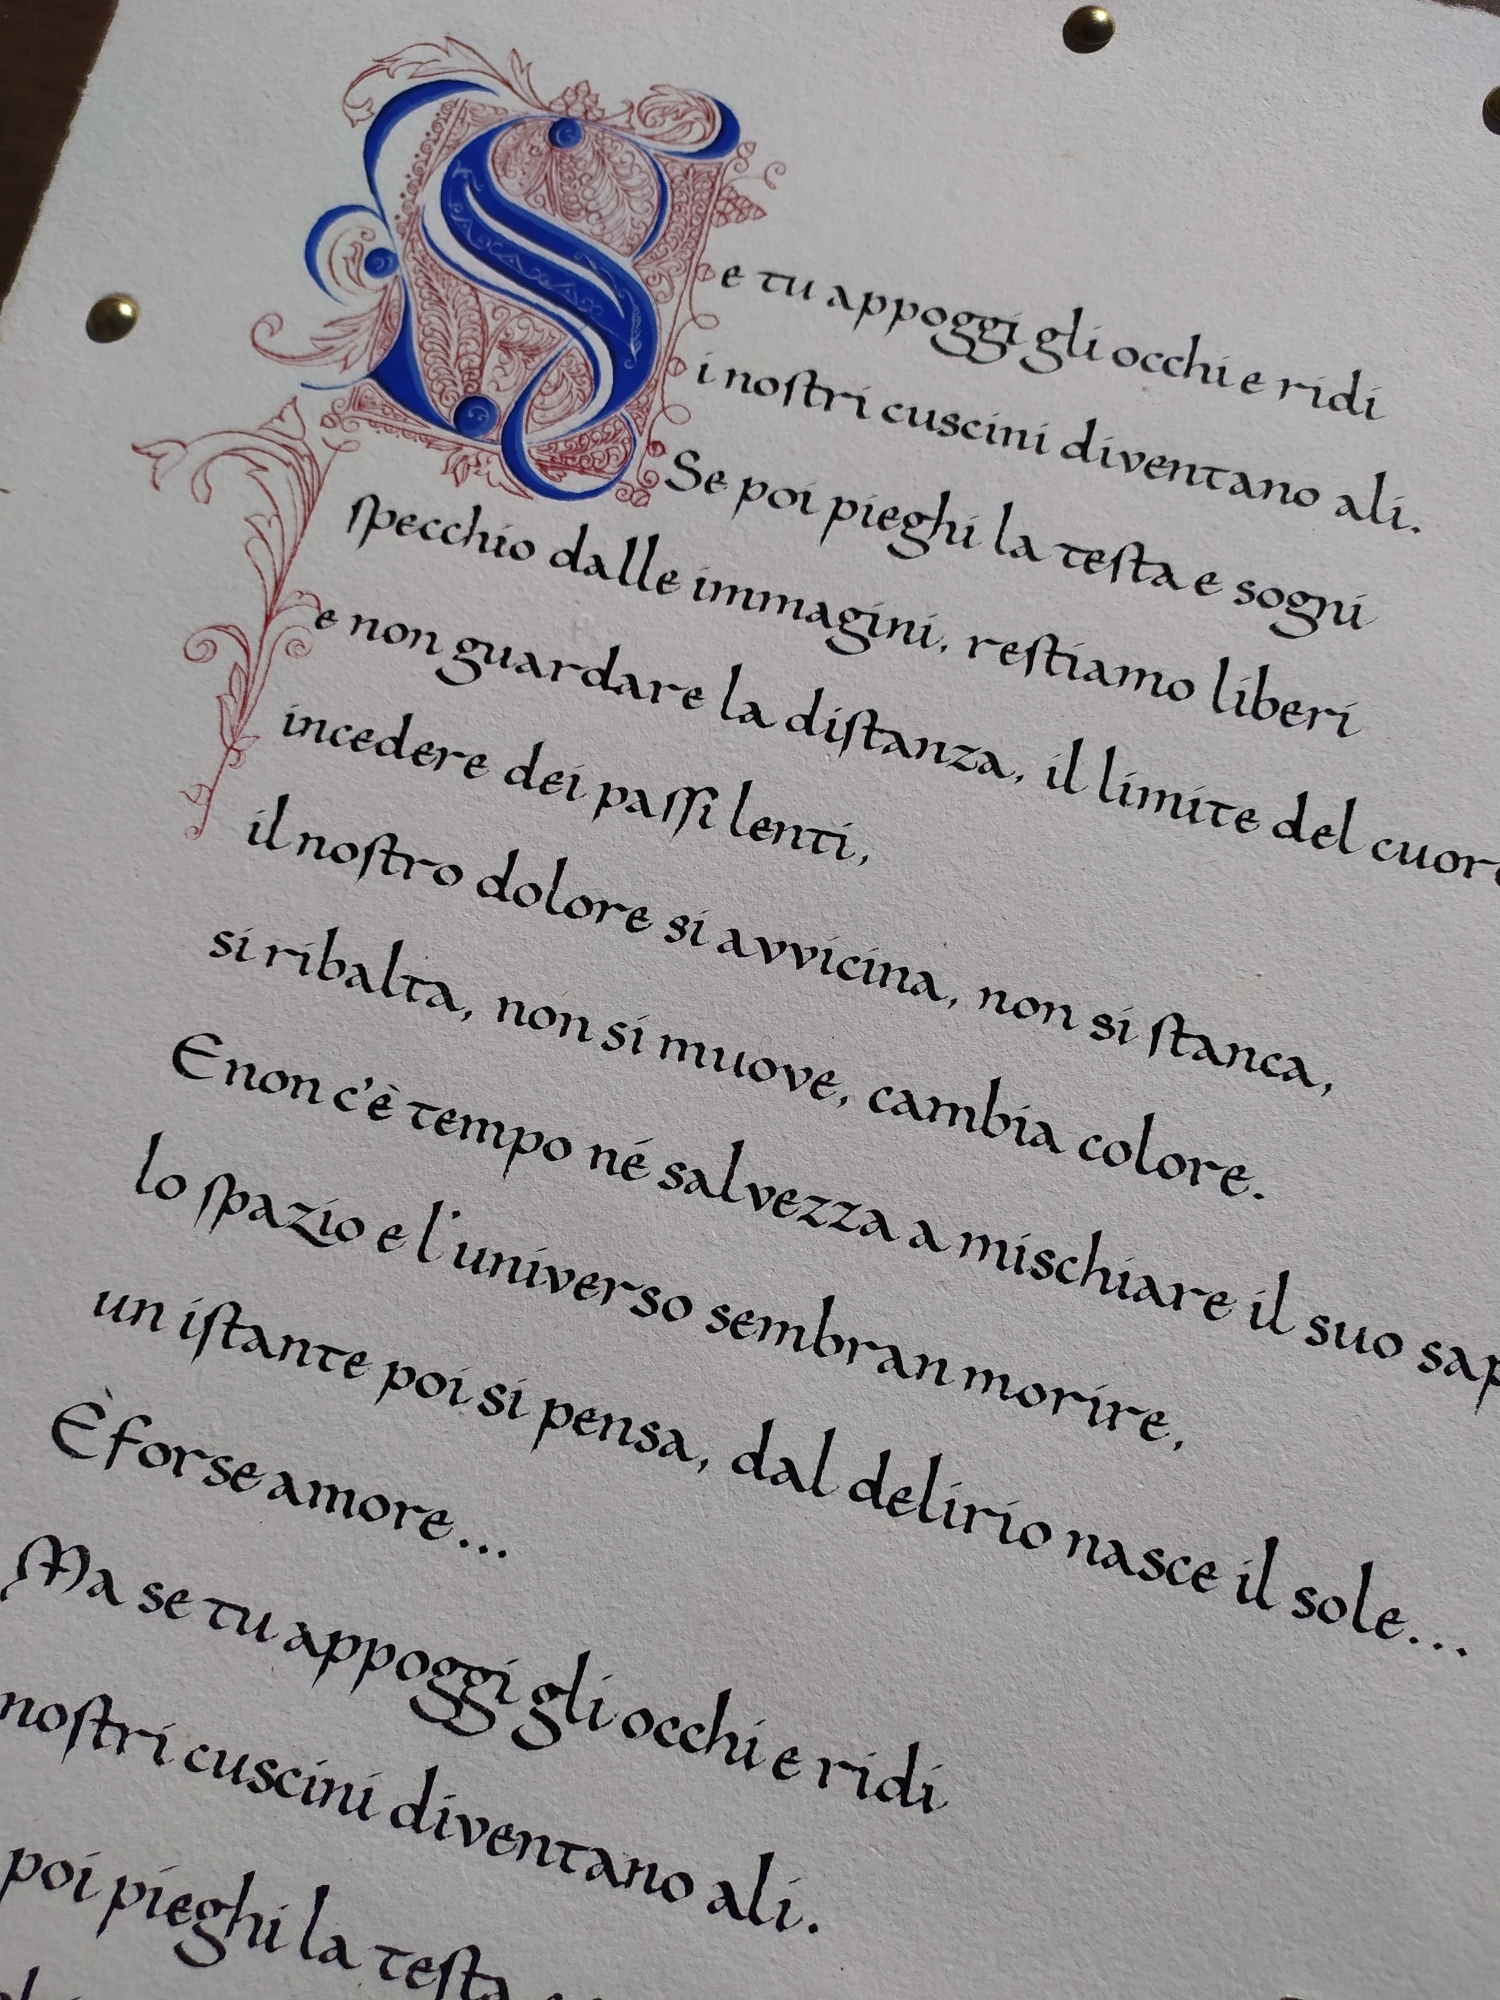 Se tu appoggi gli occhi e ridi
i nostri cuscini diventano ali.
Se poi pieghi la testa e sogni
specchio dalle immagini, restiamo liberi
e non guardare la distanza, il limite del cuore
incedere dei passi lenti,
il nostro dolore si avvicina, non si stanca,
si ribalta, non si muove, cambia colore.
E non c'è tempo né salvezza a mischiare il suo
lo spazio e l'universo sembran morire,
un istante poi si pensa, dal delirio nasce il sole...
È forse amore...
Ma se tu appoggi gli occhi e ridi
nostri cuscini diventano ali.
poi pieghi la testa